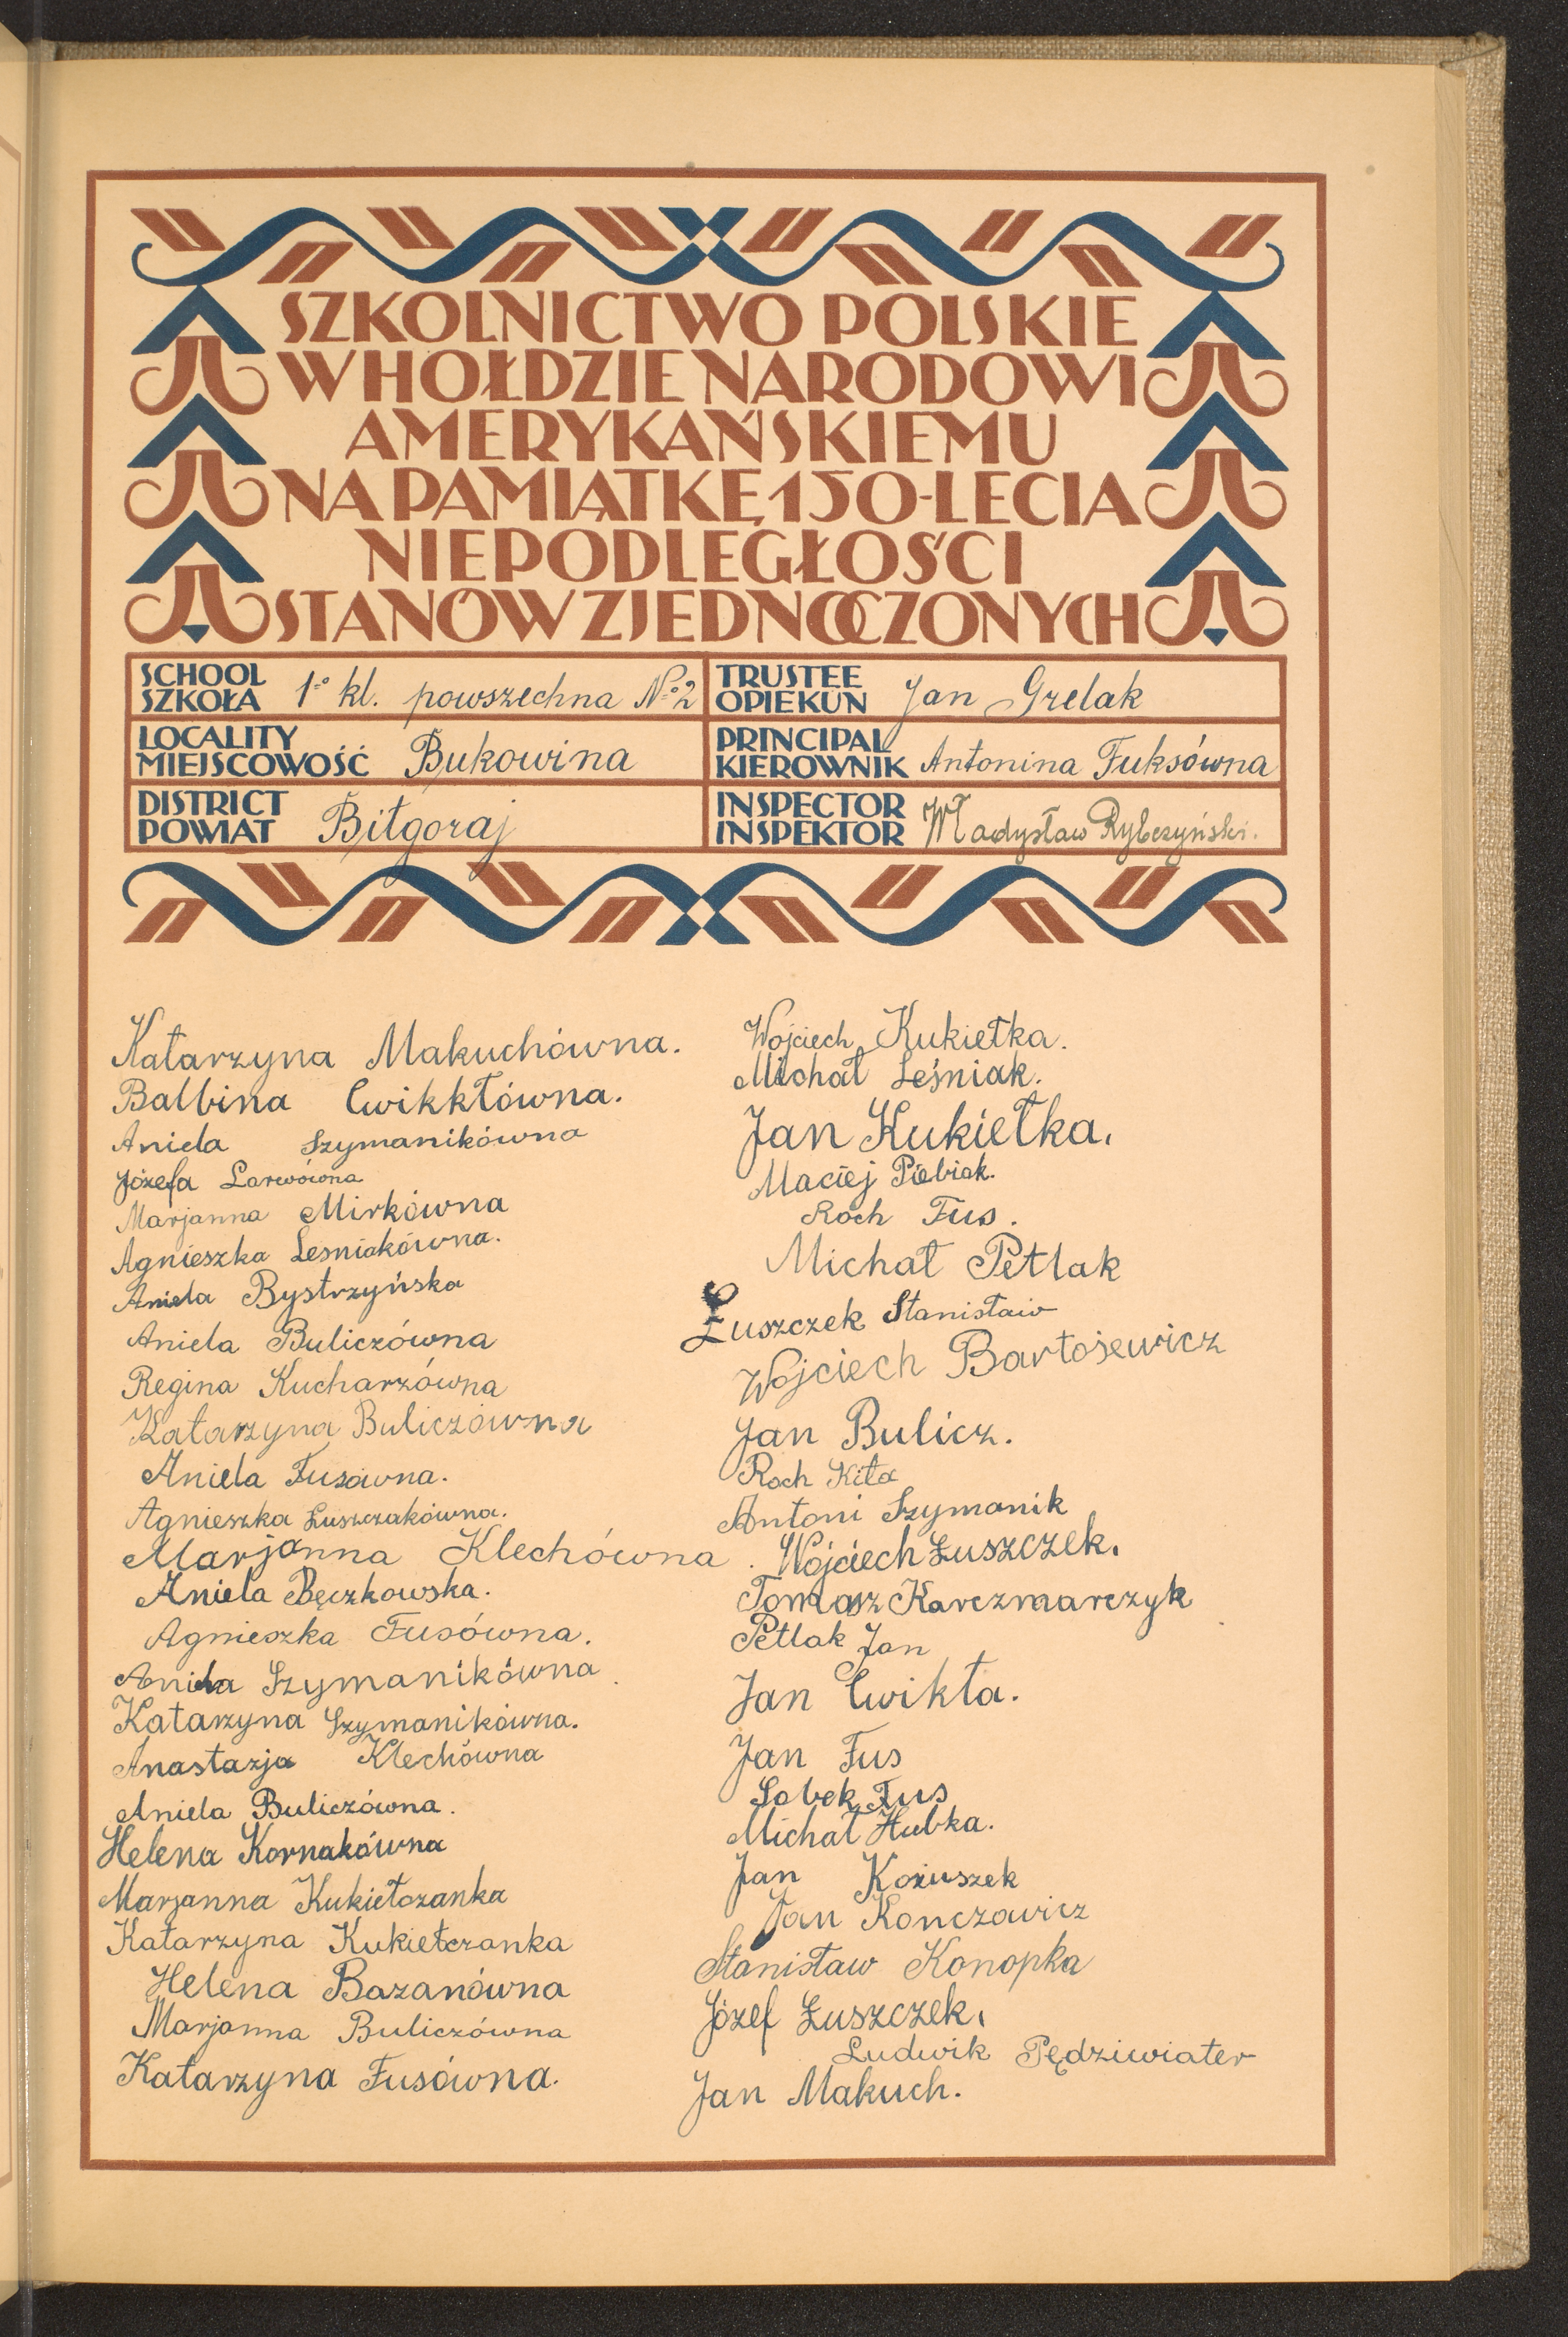 SZKOLNICTWO POLSKIE
W HOŁDZIE NARODOWI
AMERYKAŃSKIEMU
NA PAMIĄTKĘ 150-LECIA
NIEPODLEGŁOŚCI
STANÓW ZJEDNOCZONYCH
SCHOOL
SZKOŁA 1º kl. powszechna Nº 2
TRUSTEE
OPIEKUN Jan Grelak
LOCALITY
MIEJSCOWOŚĆ Bukowina
PRINCIPAL
KIEROWNIK Antonina Fuksówna
DISTRICT
POWIAT Biłgoraj
INSPECTOR
INSPEKTOR Władysław Rybczyński.
Katarzyna Makuchówna.
Balbina Cwikkłówna.
Aniela Szymanikówna
Józefa Larwówna
Marjanna Mirkówna
Agnieszka Lesniakówna.
Aniela Bystrzyńska
Aniela Buliczówna
Regina Kucharzówna
Katarzyna Buliczówna
Aniela Fusówna.
Agnieszka Łuszczakówna.
Marjanna Klechówna.
Aniela Bęczkowska.
Agnieszka Fusówna.
Aniela Szymanikówna
Katarzyna Szymanikówna.
Anastazja Klechówna
Aniela Buliczówna.
Helena Kornakówna
Marjanna Kukiełczanka
Katarzyna Kukiełczanka
Helena Bazanówna
Marjanna Buliczówna
Katarzyna Fusówna.
Wojciech Kukiełka.
Michał Leśniak.
Jan Kukiełka.
Maciej Piebiak.
Roch Fus.
Michał Petlak
Łuszczek Stanisław
Wojciech Bartosewicz
Jan Bulicz.
Roch Kita
Antoni Szymanik
Wojciech Łuszczek.
Tomasz Karczmarczyk
Petlak Jan
Jan Cwikła.
Jan Fus
Sobek Fus
Michał Hubka.
Jan Kożuszek
Jan Konczawicz
Stanisław Konopka
Józef Łuszczek.
Ludwik Pędziwiater
Jan Makuch.